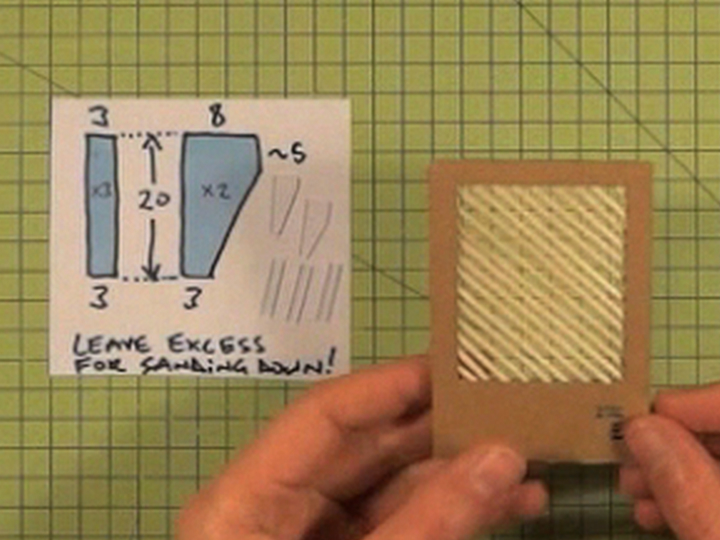 3 8
~5
x3 20 x2
3 3
LEAVE EXCESS
FOR SANDING DOWN!